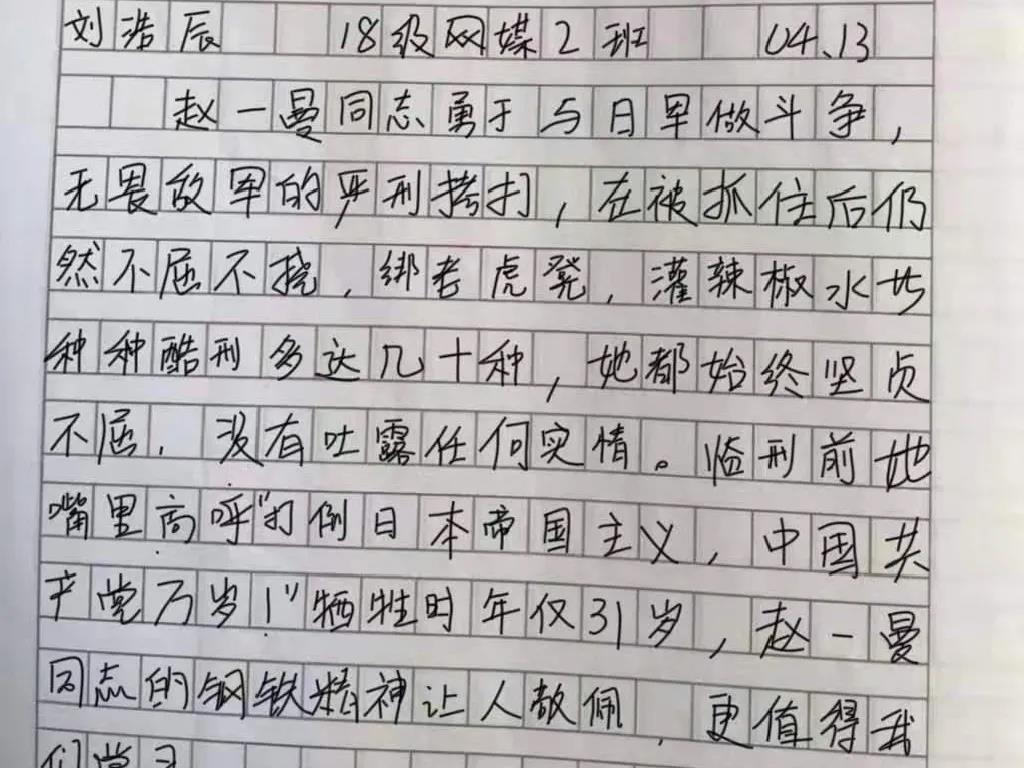 刘浩辰 18级网媒2班 04.13
赵一曼同志勇于与日军做斗争，
无畏敌军的严刑拷打，在被抓住后仍
然不屈不挠，绑老虎凳，灌辣椒水等
种种酷刑多达几十种，她都始终坚贞
不屈，没有吐露任何实情。临刑前她
嘴里高呼"打倒日本帝国主义，中国共
产党万岁！"牺牲时年仅31岁，赵一曼
同志的钢铁精神让人敬佩，更值得我
们学习